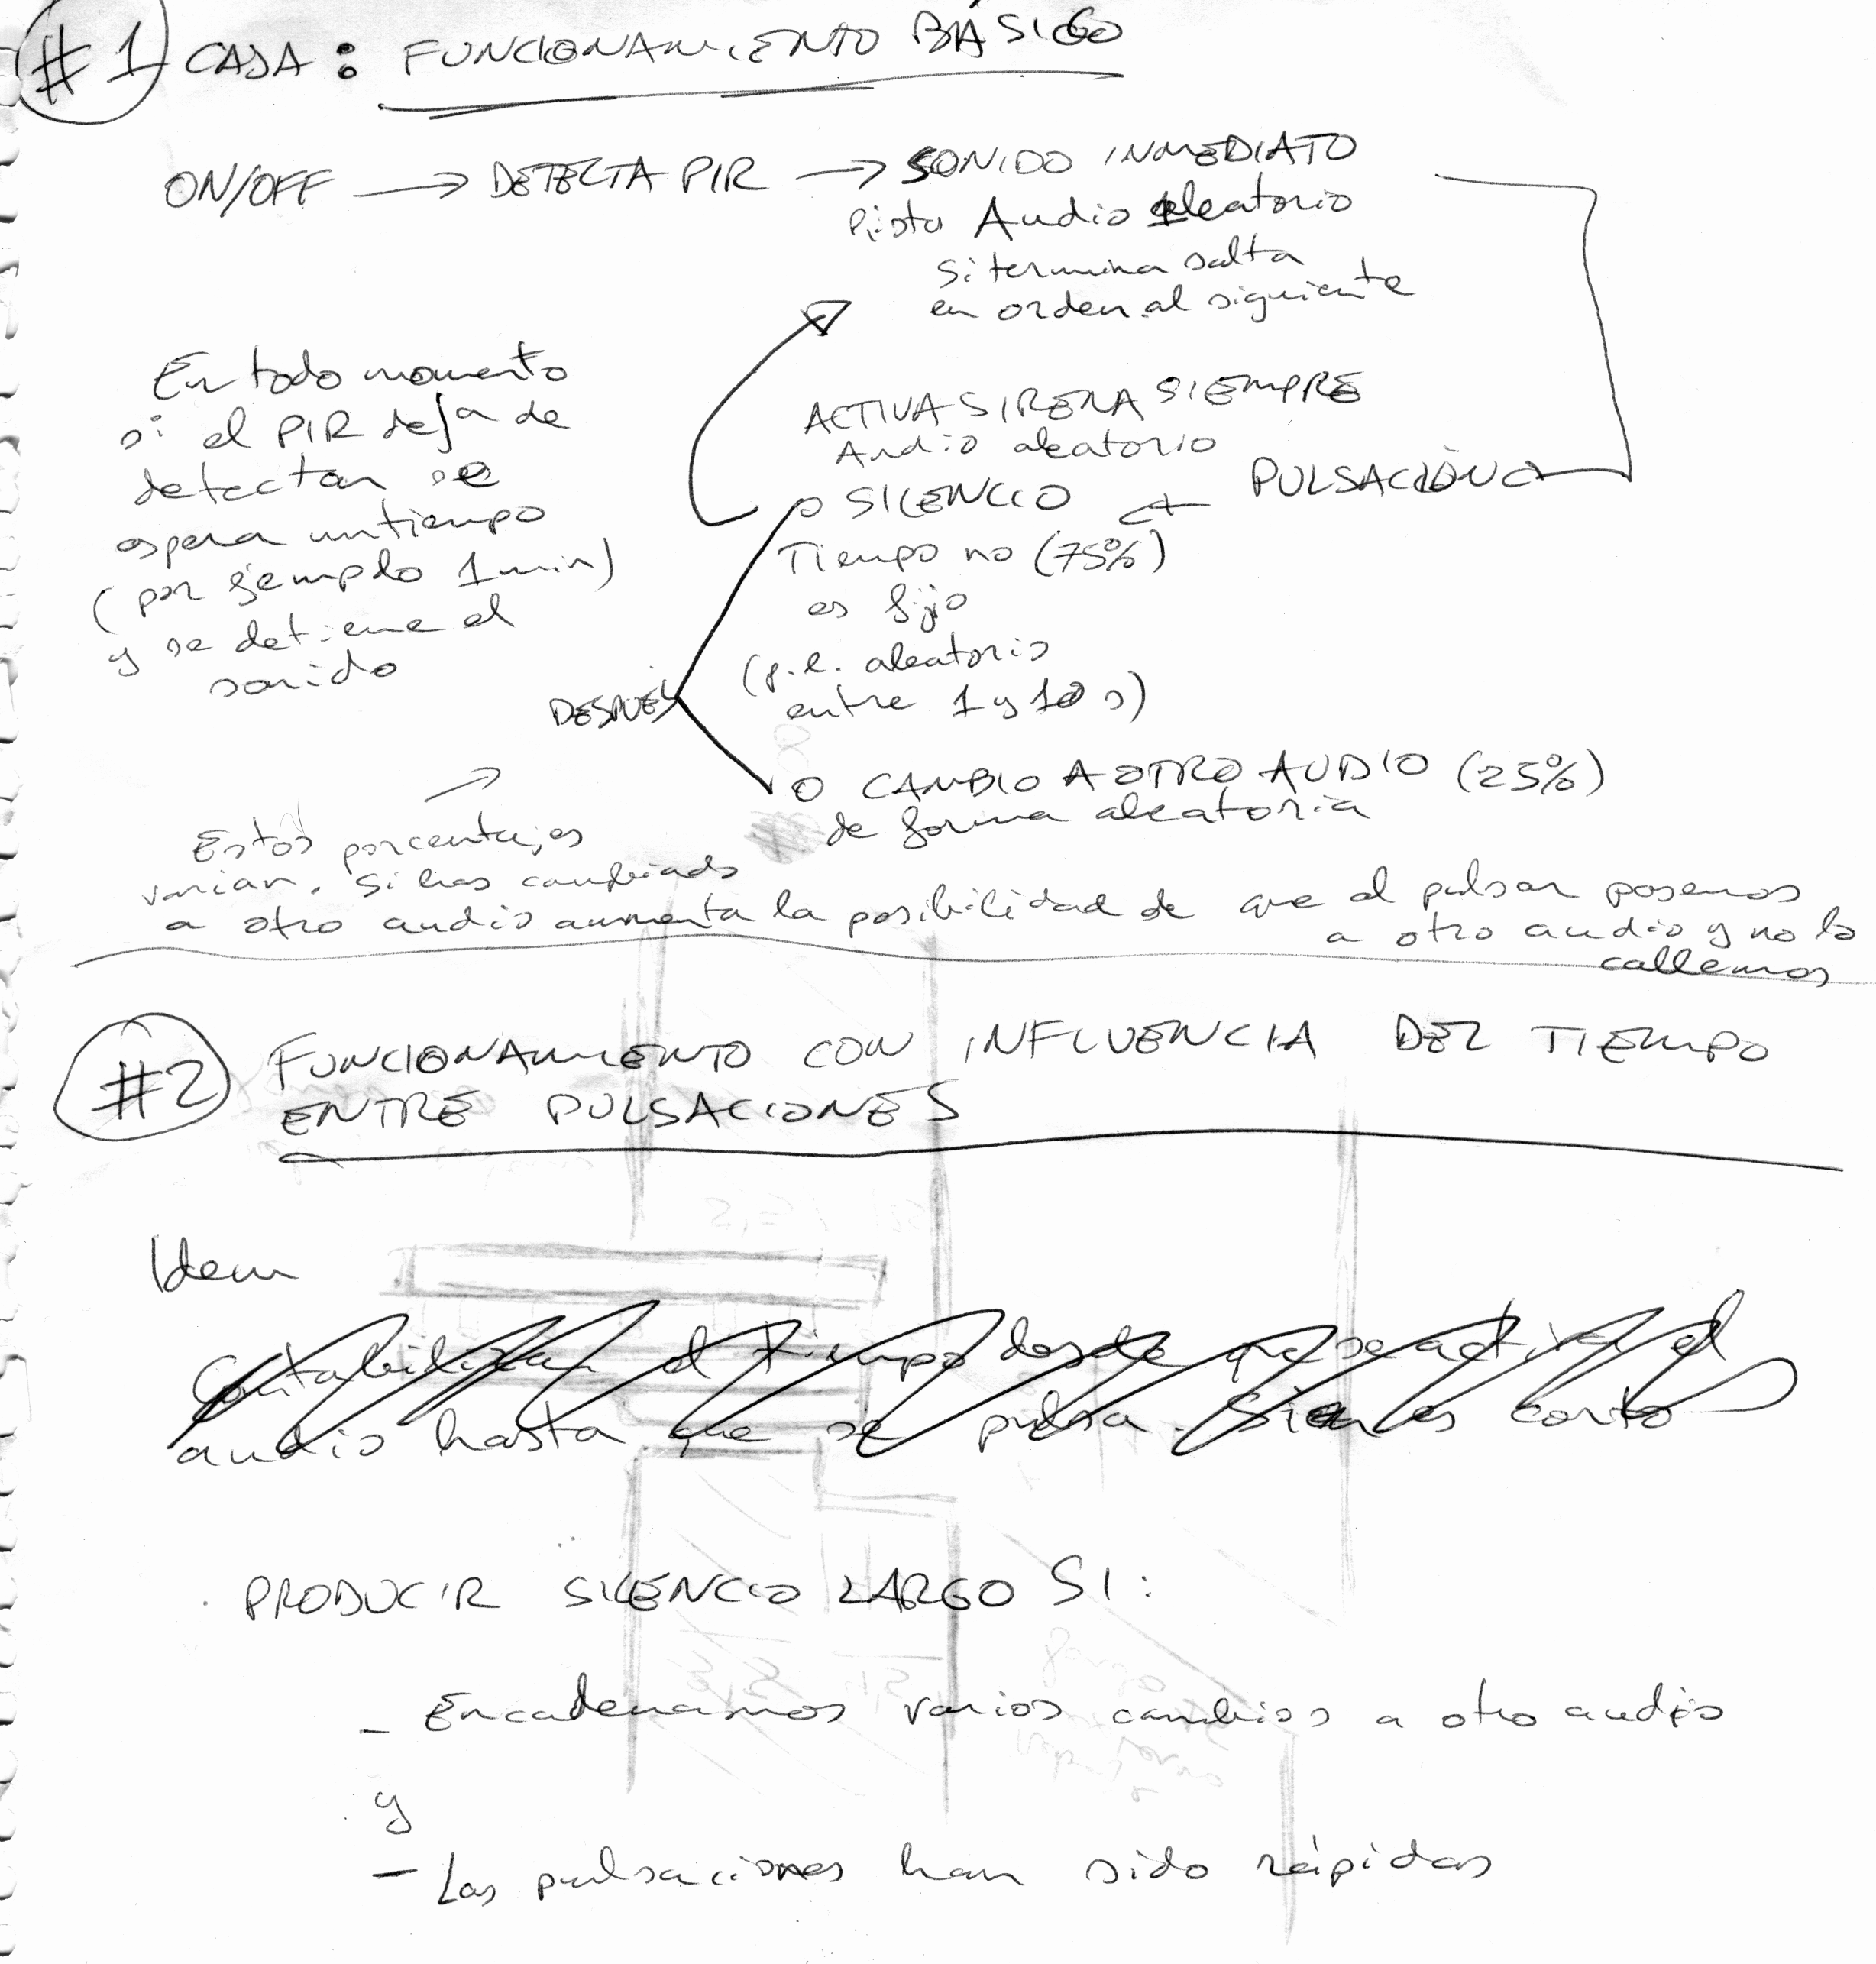 #1 CASA: FUNCIONAMIENTO BÁSICO
ON/OFF → DETECTA PIR → SONIDO INMEDIATO
Pista Audio aleatorio
Si termina salta
en orden al siguiente
En todo momento
si el PIR deja de
detectar se
espera un tiempo
(por ejemplo 1 min)
y se detiene el
sonido
ACTIVA SIRENA SIEMPRE
Audio aleatorio
PULSACIÓN
o SILENCIO ←
Tiempo no (75%)
es fijo
(p.e. aleatorio
entre 1 y 10 s)
DESPUÉS
o CAMBIO A OTRO AUDIO (25%)
de forma aleatoria
Estos porcentajes
varian. Si has cambiado
a otro audio aumenta la posibilidad de que al pulsar pasemos
a otro audio y no lo
callemos
#2 FUNCIONAMIENTO CON INFLUENCIA DEL TIEMPO
ENTRE PULSACIONES
Idem
Contabilizar el tiempo desde que se activa el
audio hasta que se pulsa. Si es corto
PRODUCIR SILENCIO LARGO SI:
- Encadenamos varios cambios a otro audio
y
- Las pulsaciones han sido rápidas